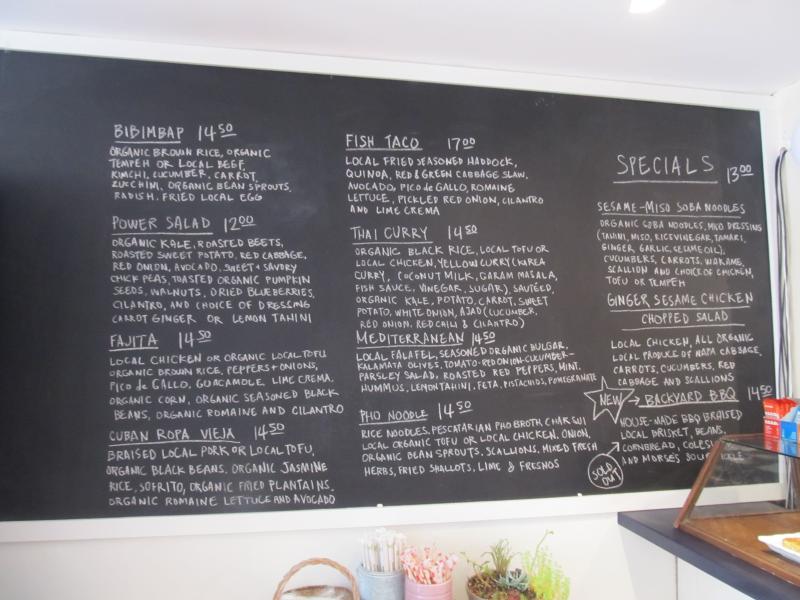 BIBIMBAP 14.50
ORGANIC BROWN RICE, ORGANIC
TEMPEH OR LOCAL BEEF,
KIMCHI, CUCUMBER, CARROT,
ZUCCHINI, ORGANIC BEAN SPROUTS,
RADISH, FRIED LOCAL EGG
POWER SALAD 12.00
ORGANIC KALE, ROASTED BEETS,
ROASTED SWEET POTATO, RED CABBAGE,
RED ONION, AVOCADO, SWEET & SAVORY
CHICK PEAS, TOASTED ORGANIC PUMPKIN
SEEDS, WALNUTS, DRIED BLUEBERRIES,
CILANTRO, AND CHOICE OF DRESSING
CARROT GINGER OR LEMON TAHINI
FAJITA 14.50
LOCAL CHICKEN OR ORGANIC LOCAL TOFU
ORGANIC BROWN RICE, PEPPERS + ONIONS,
PICO de GALLO, GUACAMOLE, LIME CREMA,
ORGANIC CORN, ORGANIC SEASONED BLACK
BEANS, ORGANIC ROMAINE AND CILANTRO
CUBAN ROPA VIEJA 14.50
BRAISED LOCAL PORK OR LOCAL TOFU,
ORGANIC BLACK BEANS, ORGANIC JASMINE
RICE, SOFRITO, ORGANIC FRIED PLANTAINS,
ORGANIC ROMAINE LETTUCE AND AVOCADO
FISH TACO 17.00
LOCAL FRIED SEASONED HADDOCK,
QUINOA, RED & GREEN CABBAGE SLAW,
AVOCADO, PICO de GALLO, ROMAINE
LETTUCE, PICKLED RED ONION, CILANTRO
AND LIME CREMA
THAI CURRY 14.50
ORGANIC BLACK RICE, LOCAL TOFU OR
LOCAL CHICKEN, YELLOW CURRY (KAREA
CURRY, COCONUT MILK, GARAM MASALA,
FISH SAUCE, VINEGAR, SUGAR) SAUTÉED,
ORGANIC KALE, POTATO, CARROT, SWEET
POTATO, WHITE ONION, AJAD (CUCUMBER,
RED ONION, RED CHILI & CILANTRO)
MEDITERRANEAN 14.50
LOCAL FALAFEL, SEASONED ORGANIC BULGAR,
KALAMATA OLIVES, TOMATO-RED ONION-CUCUMBER-
PARSLEY SALAD, ROASTED RED PEPPERS, MINT,
HUMMUS, LEMON TAHINI, FETA, PISTACHIOS, POMEGRANATE
PHO NOODLE 14.50
RICE NOODLES, PESCATARIAN PHO BROTH, CHAR SUI
LOCAL ORGANIC TOFU OR LOCAL CHICKEN, ONION,
ORGANIC BEAN SPROUTS, SCALLIONS, MIXED FRESH
HERBS, FRIED SHALLOTS, LIME & FRESNOS
SPECIALS 13.00
SESAME-MISO SOBA NOODLES
ORGANIC SOBA NOODLES, MISO DRESSING
(TAHINI, MISO, RICE VINEGAR, TAMARI,
GINGER, GARLIC, SESAME OIL),
CUCUMBERS, CARROTS, WAKAME,
SCALLION AND CHOICE OF CHICKEN,
TOFU OR TEMPEH
GINGER SESAME CHICKEN
CHOPPED SALAD
LOCAL CHICKEN, ALL ORGANIC
LOCAL PRODUCE OF NAPA CABBAGE,
CARROTS, CUCUMBERS, RED
CABBAGE AND SCALLIONS
NEW
BACKYARD BBQ 14.50
HOUSE-MADE BBQ BRAISED
LOCAL BRISKET, BEANS,
CORNBREAD, COLES
AND MORSE'S SOUR
SOLD OUT